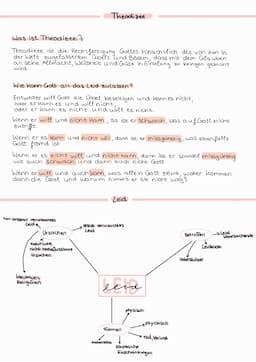 Theodizee
Was ist Theodizee?
Theodizee ist die Rechtfertigung Gottes hinsichtlich des von ihm in
der Welt zugelassenen Übels und Bösen, das mit dem Glauben
an seine Allmacht, Weisheit und Güte in Einklang zu bringen gesucht
wird.
Wie kann Gott all das Leid zulassen?
Entweder will Gott die Übel beseitigen und kann es nicht,
oder er kann es und will nicht,
oder er kann es nicht und will es nicht.
Wenn er will und nicht kann, so ist er schwach, was auf Gott nicht
zutrifft.
Wenn er es kann und nicht will, dann ist er missgünstig, was ebenfalls
Gott fremd ist.
Wenn er es nicht will und nicht kann, dann ist er sowohl missgünstig
wie auch schwach und dann auch nicht Gott.
Wenn er will und auch kann, was allein Gott ziemt, woher kommen
dann die Übel und warum nimmt er sie nicht weg?
Leid
Leid
Ursachen
Leid
natürliche
Ursachen
Betroffen
Leidende
LEID
Leid
Formen
physisch
psychisch
Tod, Verlust
Einschränkungen